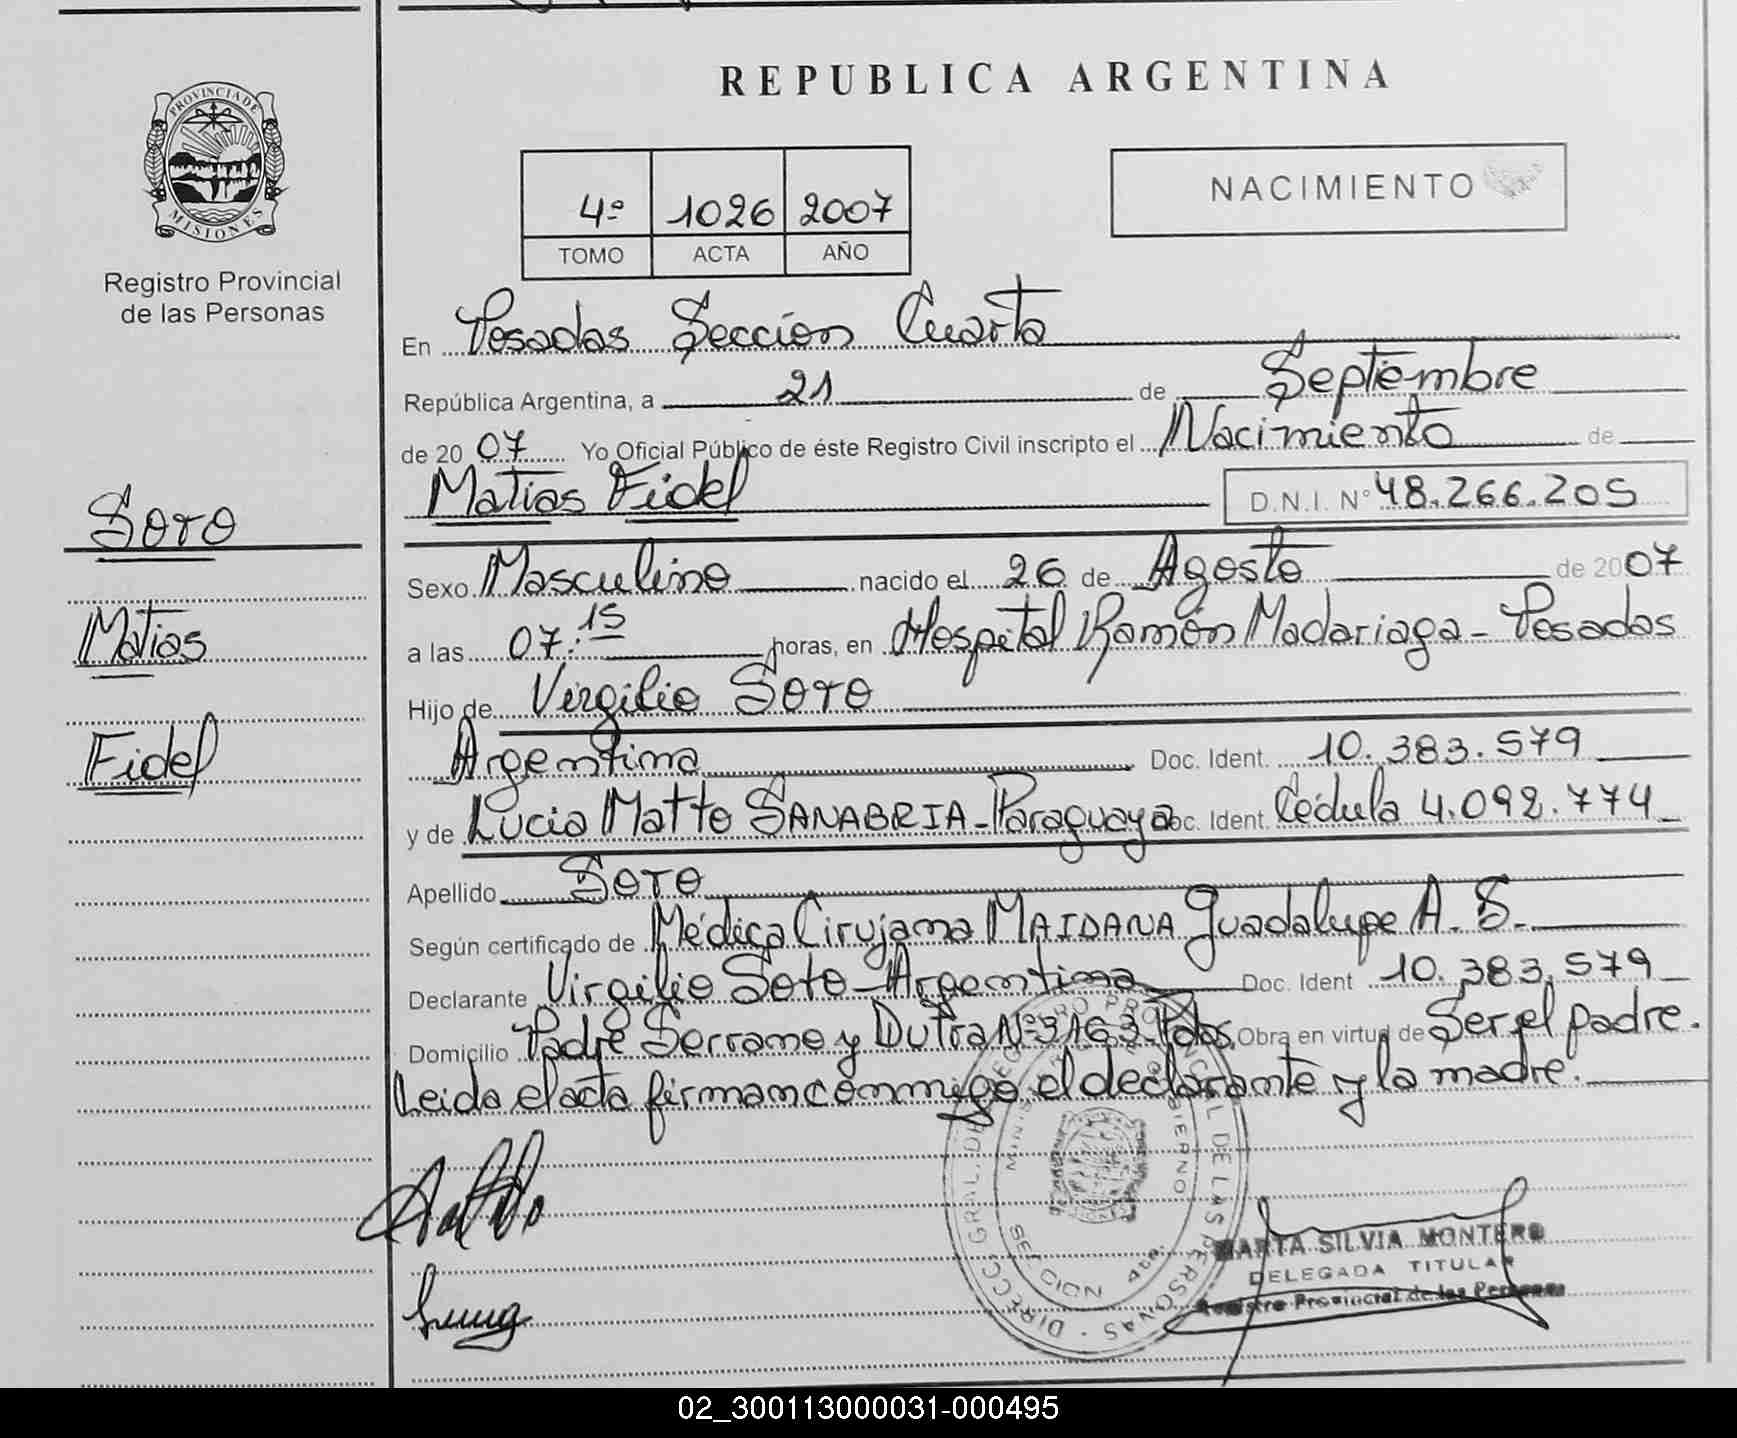 REPUBLICA ARGENTINA
PROVINCIA DE
MISIONES
Registro Provincial
de las Personas
4º 1026 2007
TOMO ACTA AÑO
NACIMIENTO
En Posadas Sección Cuarta
República Argentina, a 21 de Septiembre
de 2007 Yo Oficial Público de éste Registro Civil inscripto el Nacimiento de
Matias Fidel D.N.I. Nº 48.266.205
Soto
Matias
Fidel
Sexo Masculino nacido el 26 de Agosto de 2007
a las 07:15 horas, en Hospital Ramón Madariaga - Posadas
Hijo de Virgilio Soto
Argentina Doc. Ident. 10.383.579
y de Lucia Matto SANABRIA - Paraguaya Doc. Ident. Cédula 4.092.774
Apellido Soto
Según certificado de Médica Cirujana MAIDANA Guadalupe A. S.
Declarante Virgilio Soto - Argentina Doc. Ident 10.383.579
Domicilio Padre Serrano y Dutra Nº 3163 Pdas. Obra en virtud de Ser el padre.
Leida el acta firman conmigo el declarante y la madre.
DIRECC. GRAL. DEL REGISTRO PROVINCIAL DE LAS PERSONAS
SECCION 4ta.
MARTA SILVIA MONTERO
DELEGADA TITULAR
Registro Provincial de las Personas
02_300113000031-000495